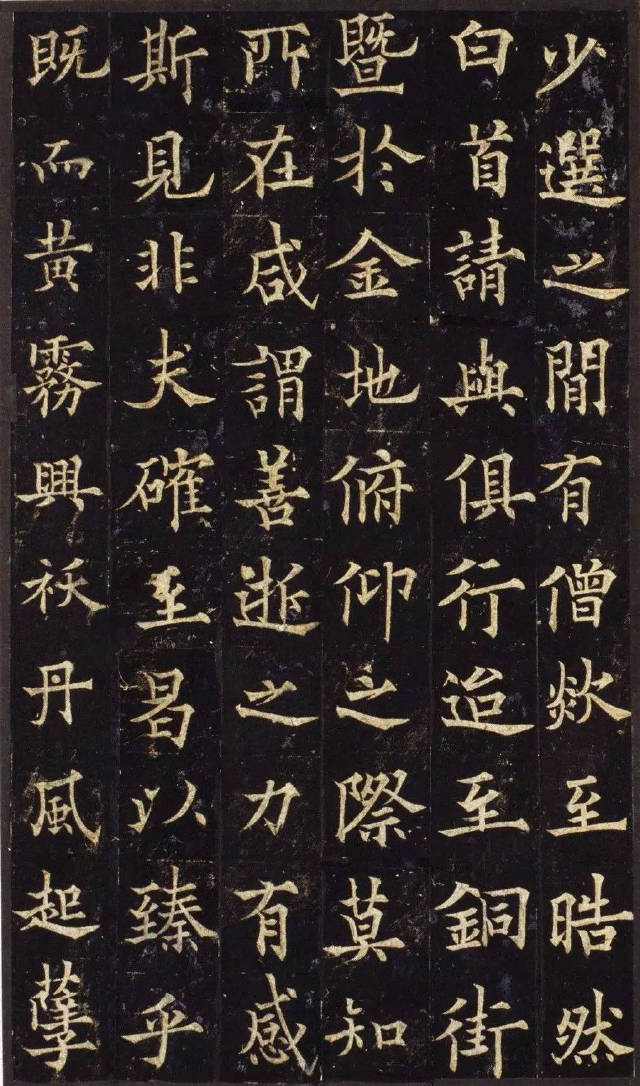 少選之間有僧歘至晧然
白首請與俱行迨至銅街
暨於金地俯仰之際莫知
所在咸謂善逝之力有感
斯見非夫確至曷以臻乎
既而黃霧興祅丹風起孽